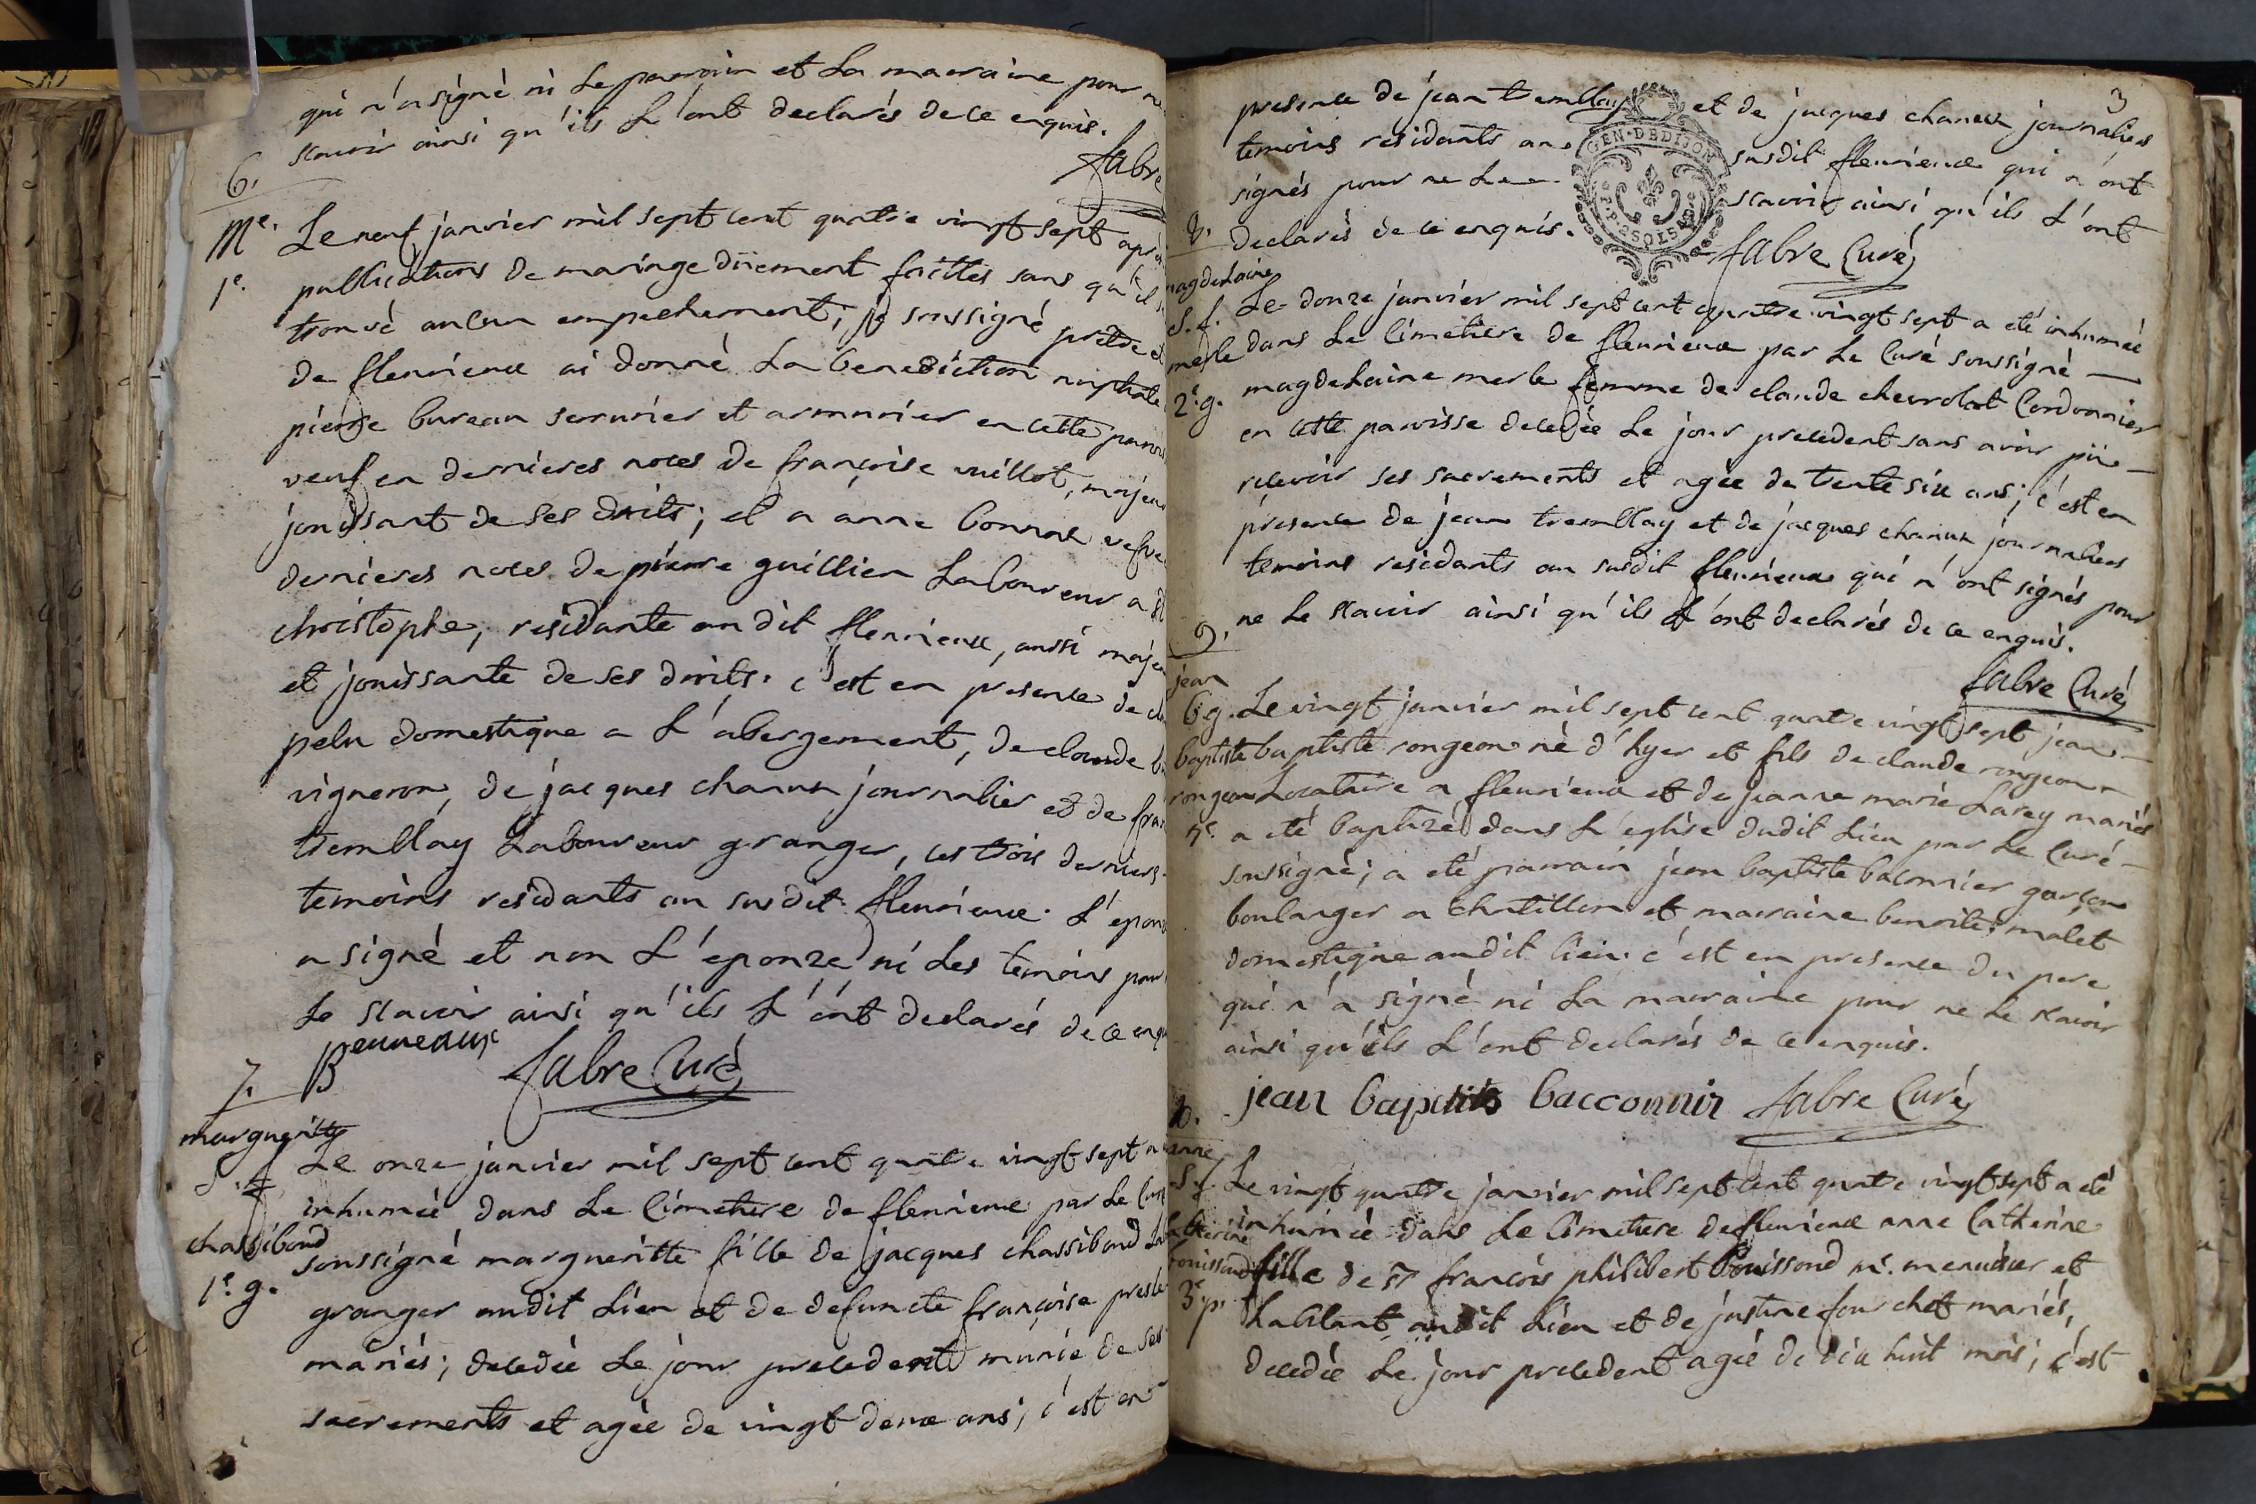 qui n'a signé ni le parrain et la marraine pour ne
scavoir ainsi qu'ils L'ont declarés de ce enquis.
fabre
6.
Me.
1e.
Le neuf janvier mil sept cent quatre vingt sept après
publications de mariage düement faittes sans qu'il
trouvé aucun empechement; je soussigné prêtre et
de fleurieux ai donné La benediction nuptiale
pierre bureau serrurier et armurier en cette parois
veuf en dernieres noces de françoise vuillot, majeur
jouissant de ses droits; et a anne bonnot vefve
dernieres noces de pierre guillien Laboureur a St
christophe, residante au dit fleurieux, aussi majeu
et jouissante de ses droits. c'est en presence de cl
pelu domestique a L'abergement, de claude
vigneron, de jacques chanux journalier et de fran
tremblay Laboureur granger, ces trois derniers
temoins residants au susdit fleurieux. L'epoux
a signé et non L'epouze ni Les temoins pour
Le scavoir ainsi qu'ils L'ont declarés de ce enqu
Beuneaux fabre Curé
7.
margueritte
S. f.
chassibond
1e. g.
Le onze janvier mil sept cent quatre vingt sept a
inhumée dans Le Cimetiere de fleurieux par Le Curé
soussigné margueritte fille de jacques chassibond La
granger audit Lieu et de defuncte françoise presle
mariés; decedée Le jour precedent munie de ses
sacrements et agée de vingt deux ans; c'est en
3
presence de jean tremblay et de jacques chanux journaliers
temoins residants au susdit fleurieux qui n'ont
signés pour ne Le scavoir ainsi qu'ils L'ont
declarés de ce enquis.
fabre Curé
GEN. DE DIJON
8.
magdelaine
S. f.
merle
2e. g.
Le douze janvier mil sept cent quatre vingt sept a eté inhumée
dans Le Cimetiere de fleurieux par Le Curé soussigné
magdelaine merle femme de claude chevrolat Cordonnier
en cette paroisse decedée Le jour precedent sans avoir pû
recevoir ses sacrements et agée de trente six ans; c'est en
presence de jean tremblay et de jacques chanux journaliers
temoins residants au susdit fleurieux qui n'ont signés pour
ne Le scavoir ainsi qu'ils L'ont declarés de ce enquis.
fabre Curé
9.
jean
b. g.
baptiste
rongeon
Le vingt janvier mil sept cent quatre vingt sept jean
baptiste rongeon né d'hyer et fils de claude rongeon
Locataire a fleurieux et de jeanne marie Larey mariés
a eté baptizé dans L'eglise dudit Lieu par Le Curé
soussigné; a eté parrain jean baptiste baconnier garçon
boulanger a chatillon et marraine benoite malet
domestique audit lieu. c'est en presence du pere
qui n'a signé ni La marraine pour ne Le scavoir
ainsi qu'ils L'ont declarés de ce enquis.
jean baptiste bacconnir fabre Curé
10.
anne
S. f.
catherine
bouissond
3e. p.
Le vingt quatre janvier mil sept cent quatre vingt sept a eté
inhumée dans Le Cimetiere de fleurieux anne Catherine
fille de Sr françois philibert bouissond me. menuisier et
habitant audit Lieu et de justine fourchet mariés,
decedée Le jour precedent agée de dix huit mois; c'est